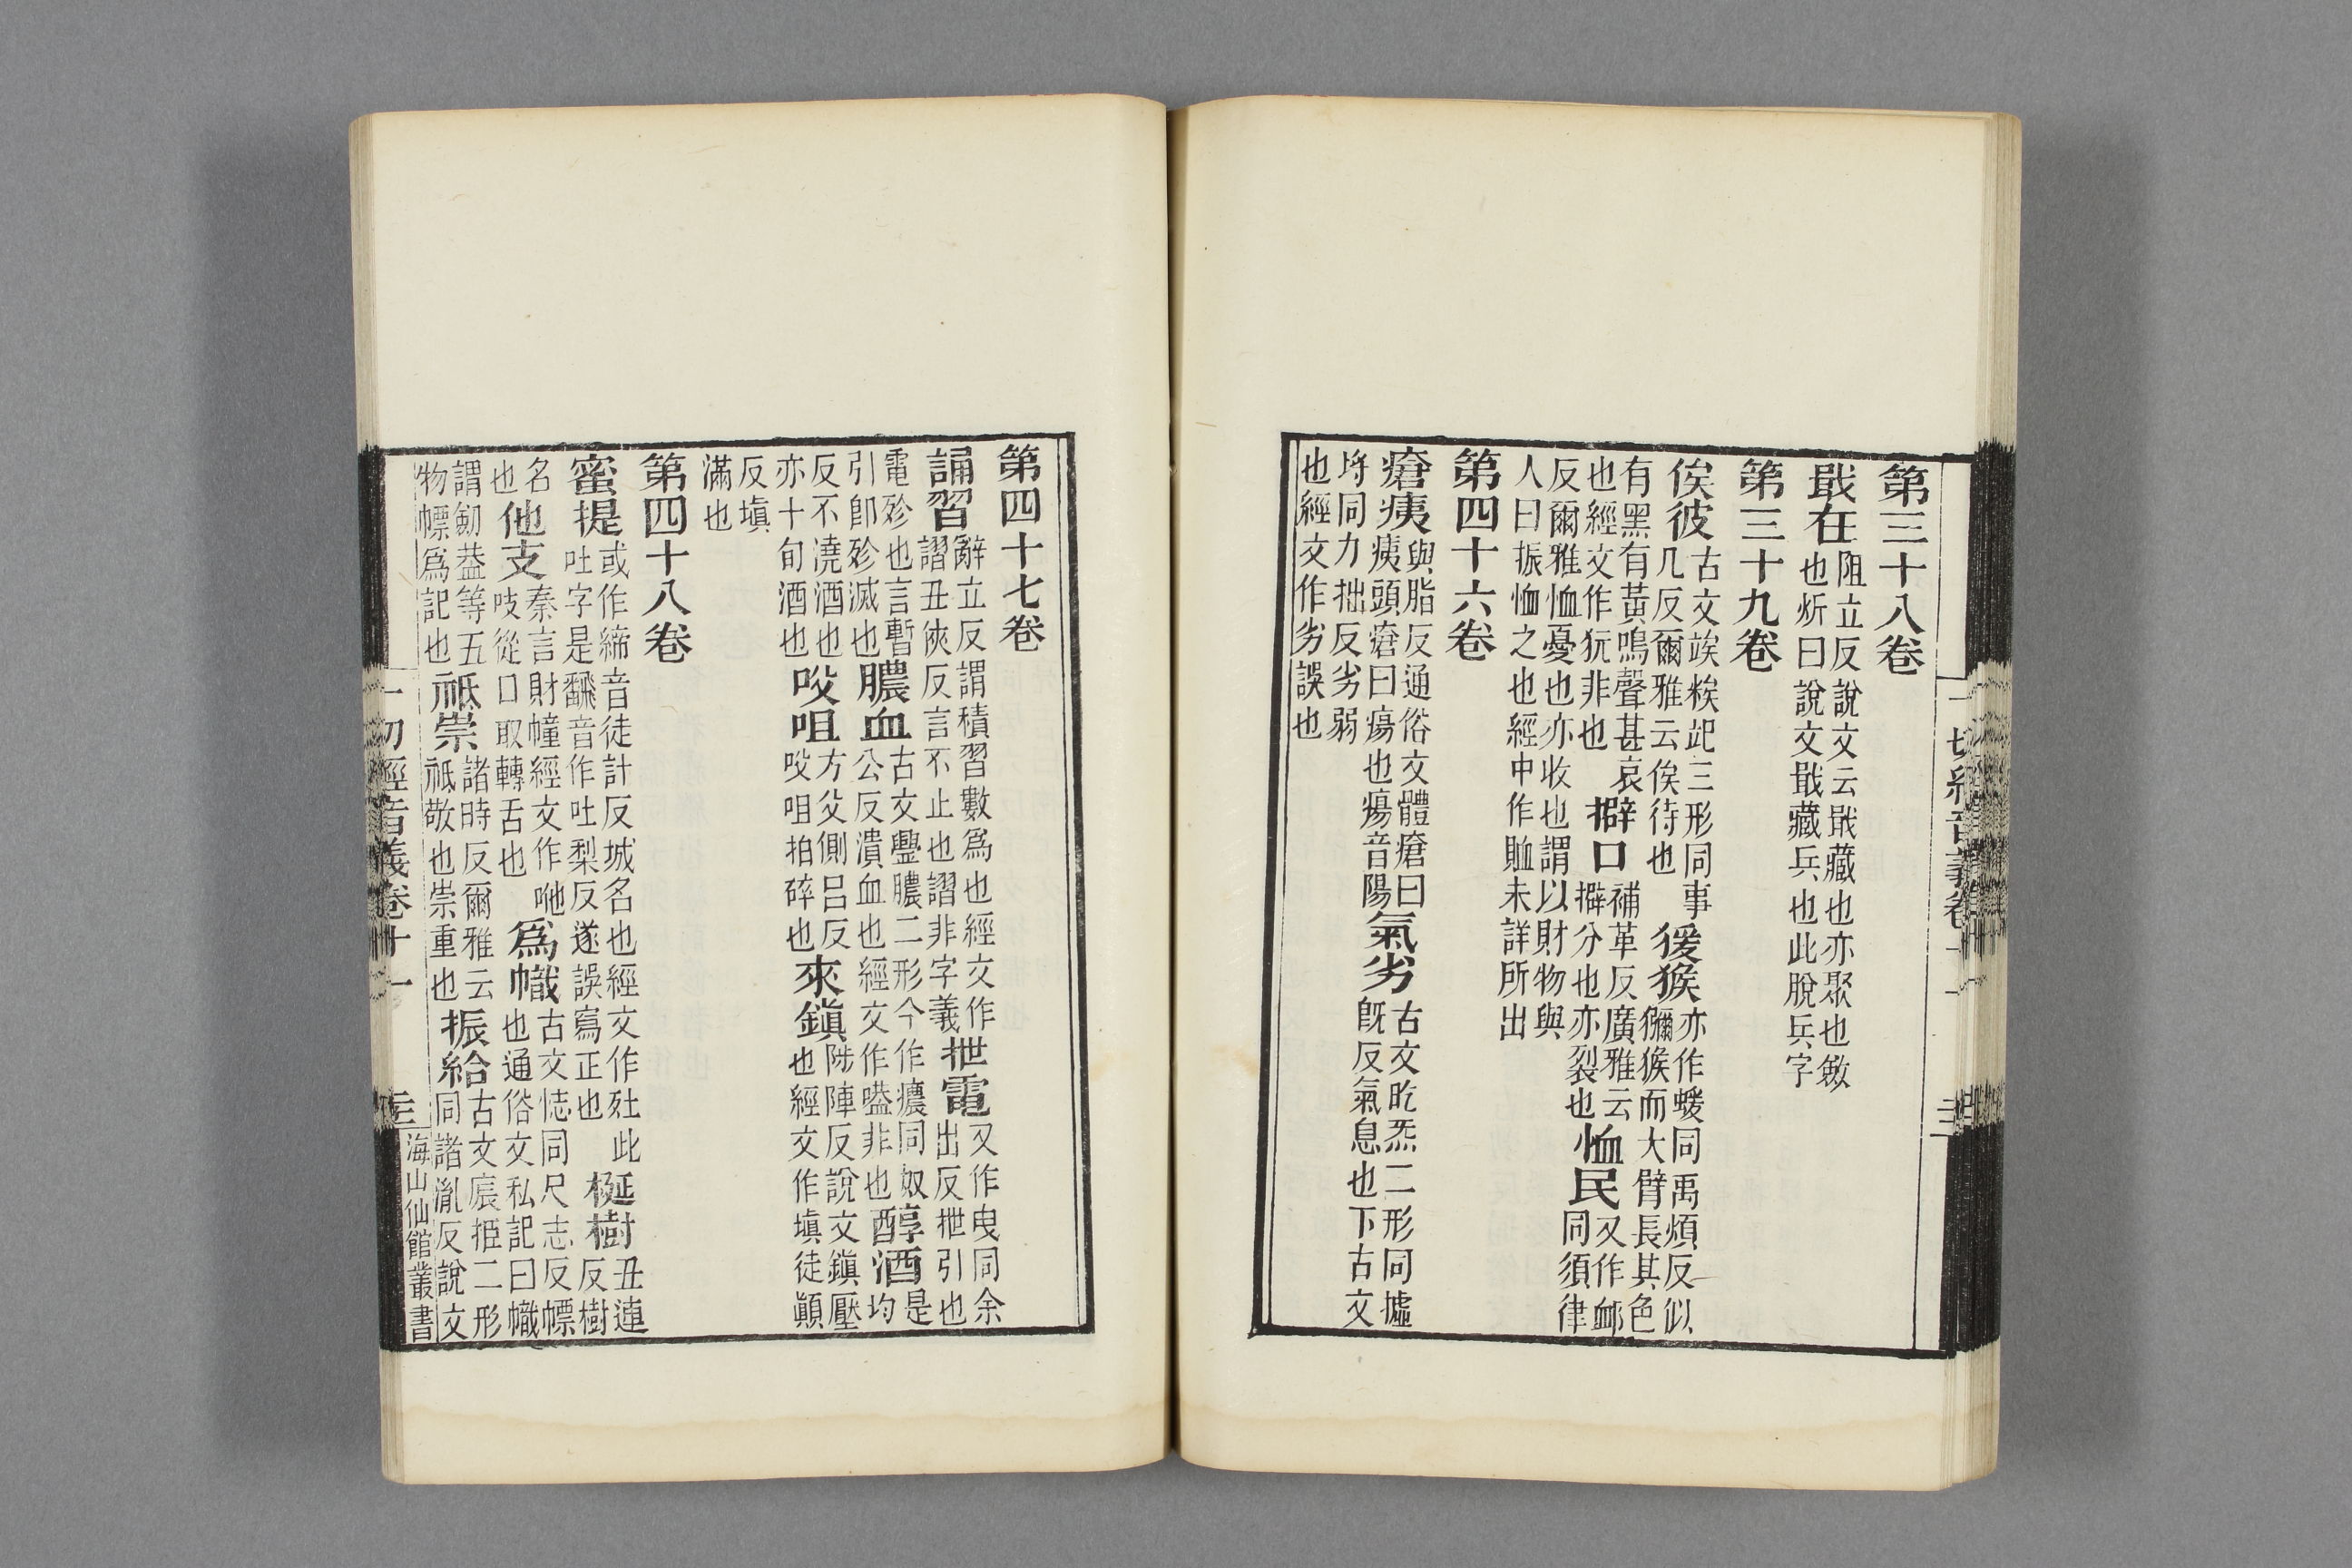 第三十八卷
戢在阻立反說文云戢藏也亦聚也斂
也炘曰說文戢藏兵也此脫兵字
第三十九卷
俟彼古文竢䊫䇃三形同事
几反爾雅云俟待也
猨猴亦作蝯同禹煩反似
獼猴而大臂長其色
有黑有黃鳴聲甚哀
也經文作犺非也
擗口補革反廣雅云
擗分也亦裂也
恤民又作卹
同須律
反爾雅恤憂也亦收也謂以財物與
人曰振恤之也經中作賉未詳所出
第四十六卷
瘡痍與脂反通俗文體瘡曰
痍頭瘡曰瘍也瘍音陽
氣劣古文旣炁二形同墟
旣反氣息也下古文
㭩同力拙反劣弱
也經文作劣誤也
第四十七卷
誦習辭立反謂積習數爲也經文作
謵丑俠反言不止也謵非字義
抴電又作曳同余
出反抴引也
電㱴也言暫
引卽㱴滅也
膿血古文盥膿二形今作癑同奴
公反潰血也經文作嗑非也
醇酒是
均
反不澆酒也
亦十旬酒也
㕮咀方父側呂反
㕮咀拍碎也
來鎭陟陣反說文鎭壓
也經文作塡徒顚
反塡
滿也
第四十八卷
蜜提或作締音徒計反城名也經文作㱔此
吐字是飜音作吐梨反遂誤寫正也
梴樹丑連
反樹
名
也
他支秦言財幢經文作
吱從口取轉舌也 吔
爲幟古文恀同尺志反幖
也通俗文私記曰幟
謂釰葢等五
物幖爲記也
祗崇諸時反爾雅云
祗敬也崇重也
振給古文㡡挋二形
同諸胤反說文
一切經音義卷十一
海山仙館叢書